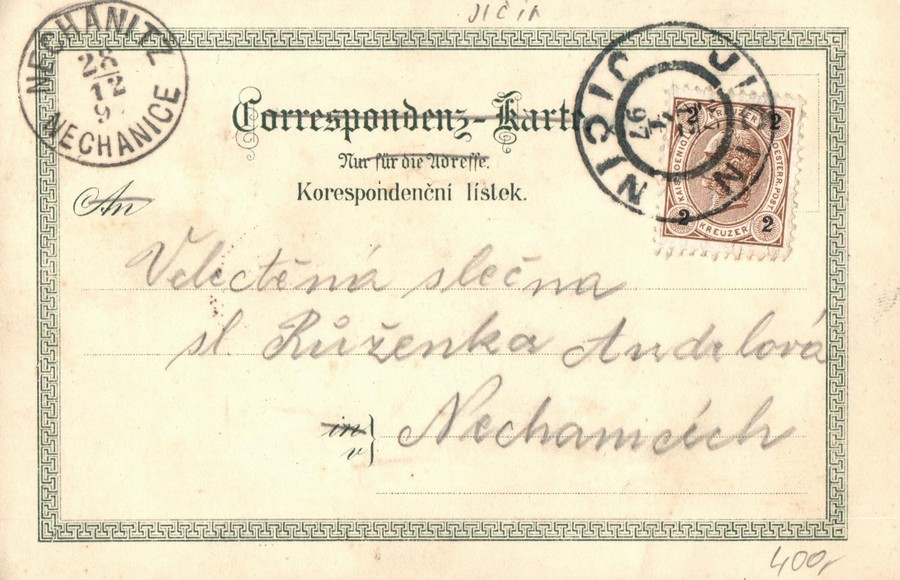 JIČÍN
NECHANITZ
28
12
9
NECHANICE
JIČIN
JIČIN
97
2 KREUZER 2
KAIS. KOENIGL. OESTERR. POST
2 KREUZER 2
Correspondenz-Karte
Nur für die Adresse.
Korespondenční lístek.
An
Velectěná slečna
sl Růženka Andrlová
in
v
Nechanicích
400,-